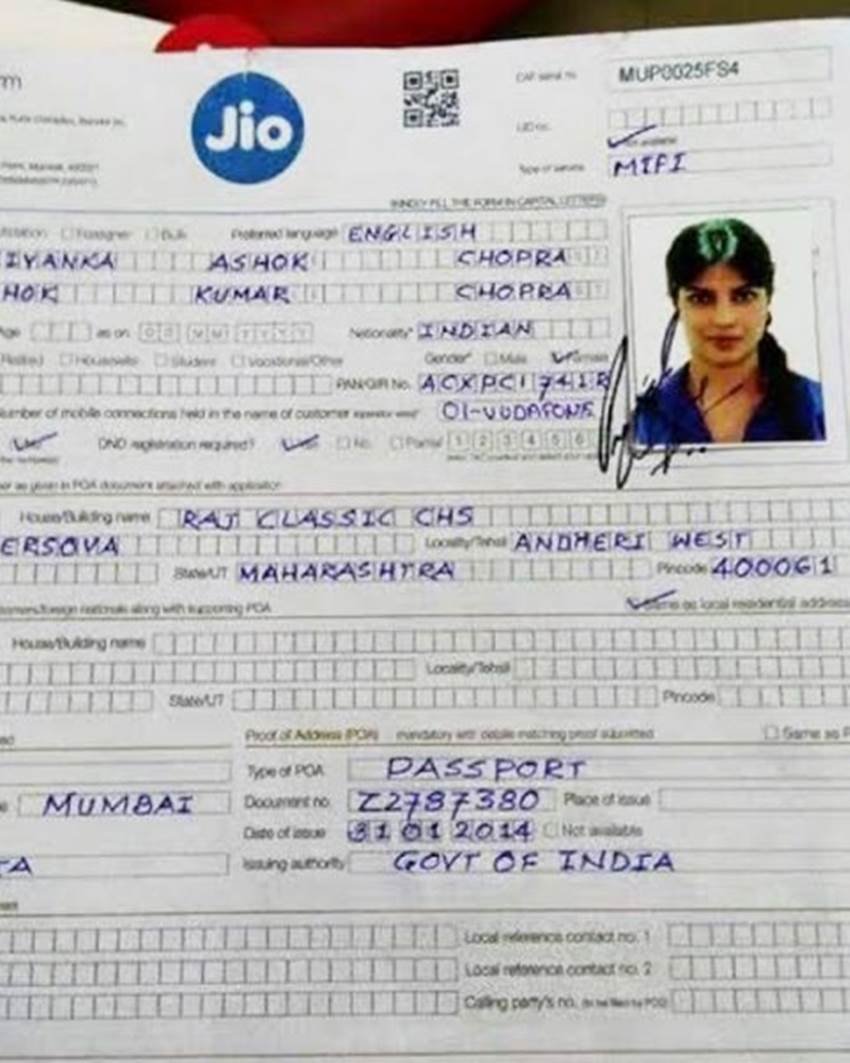 rm
Jio
CAF serial no MUP0025FS4
UID no.
Not available
Type of service MIFI
KINDLY FILL THE FORM IN CAPITAL LETTERS
Foreigner Bulk Preferred language ENGLISH
IYANKA ASHOK CHOPRA
HOK KUMAR CHOPRA
Age as on DD MM YYYY Nationality* INDIAN
Retired Housewife Student Vocational/Other Gender* Male Female
PAN/GIR No. ACXPC1741R
umber of mobile connections held in the name of customer 01-VODAFONE
DND registration required? No Partial 1 2 3 4 5 6
er as given in POA document attached with application
House/Building name RAJ CLASSIC CHS
ERSOVA Locality/Tehsil ANDHERI WEST
State/UT MAHARASHTRA Pincode 400061
stomers/foreign nationals along with supporting POA Same as local residential address
House/Building name
Locality/Tehsil
State/UT Pincode
Proof of Address (POA) mandatory with details matching proof submitted Same as P
Type of POA PASSPORT
MUMBAI Document no. Z2787380 Place of issue
Date of issue 31 01 2014 Not available
TA Issuing authority GOVT OF INDIA
Local reference contact no. 1
Local reference contact no. 2
Calling party's no.